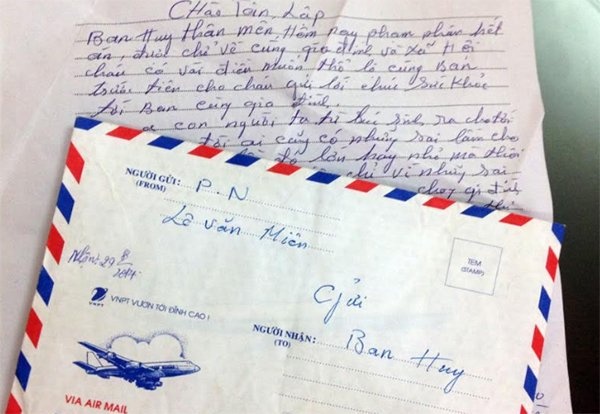 Chào Tân Lập
Ban Huy thân mến, Hôm nay phạm phán hết
án, được chở về cùng gia đình và Xã Hội
cháu có vài điều muốn thổ lộ cùng Ban
trước tiên cho cháu gửi lời chúc sức khỏe
tới Ban cùng gia đình.
con người ta từ lúc sinh ra cho tới
tới ai cũng có những sai lầm cho
dù to lớn hay nhỏ mà thôi
chỉ vì những sai
chạy gia đình
NGƯỜI GỬI: P.N
(FROM)
Lê Văn Miên
TEM
(STAMP)
Nhận: 29/8
2014
VNPT
VNPT VƯƠN TỚI ĐỈNH CAO !
Gửi
NGƯỜI NHẬN: Ban Huy
(TO)
VIA AIR MAIL